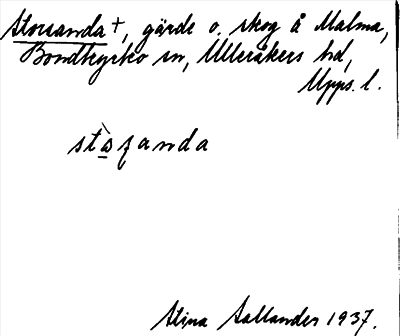 Storsanda †, gärde o. skog å Malma,
Bondkyrko sn, Ulleråkers hd,
Upps. l.
stò̱ʂanda
Stina Sallander 1937.